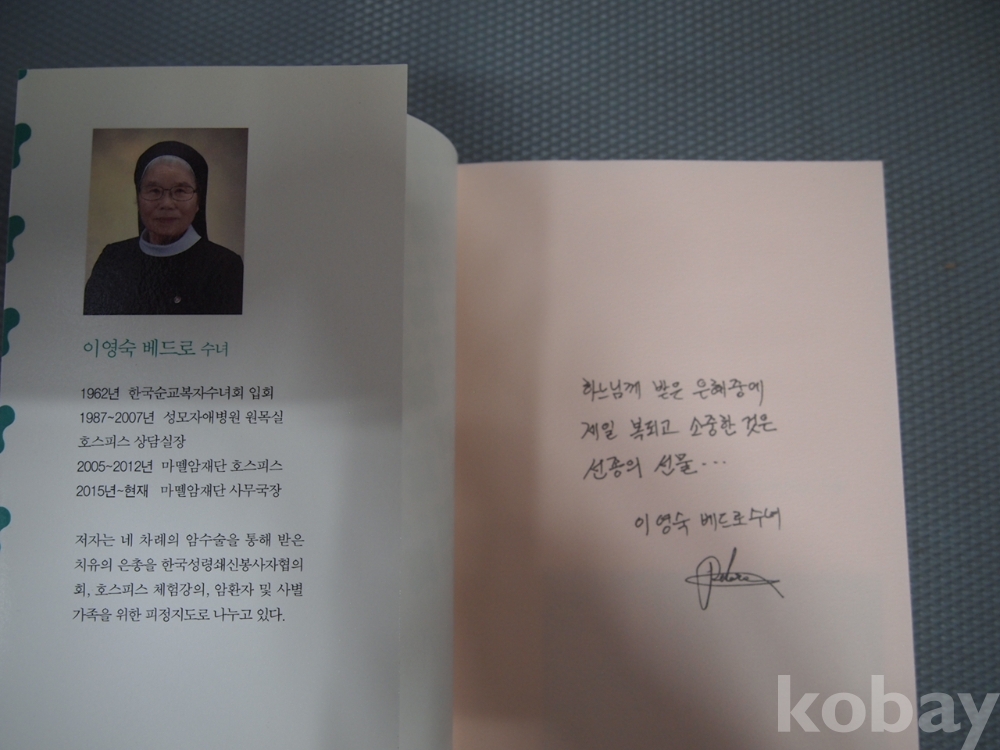 이영숙 베드로 수녀
1962년 한국순교복자수녀회 입회
1987~2007년 성모자애병원 원목실
호스피스 상담실장
2005~2012년 마뗄암재단 호스피스
2015년~현재 마뗄암재단 사무국장
저자는 네 차례의 암수술을 통해 받은
치유의 은총을 한국성령쇄신봉사자협의
회, 호스피스 체험강의, 암환자 및 사별
가족을 위한 피정지도로 나누고 있다.
하느님께 받은 은혜중에
제일 복되고 소중한 것은
선종의 선물...
이영숙 베드로수녀
kobay